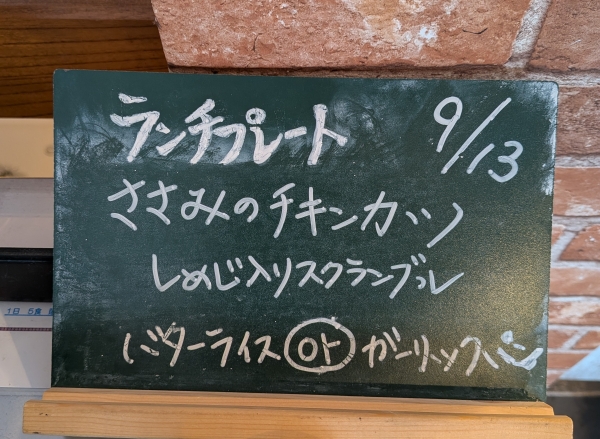 ランチプレート 9/13
ささみのチキンカツ
しめじ入りスクランブル
バターライス or ガーリックパン
1日 5食